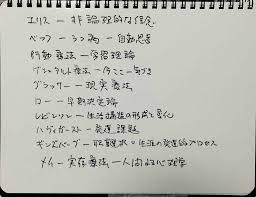 エリス ー 非論理的な信念
ベック ー うつ病 ー 自動思考
行動療法 ー 学習理論
ゲシュタルト療法 ー 今ここ 気づき
グラッサー ー 現実療法
ロー ー 早期決定論
レビンソン ー 生活構造の形成と変化
ハヴィガースト ー 発達課題
ギンズバーグ ー 生涯の発達的プロセス
メイ ー 実存療法 ー 人間性心理学